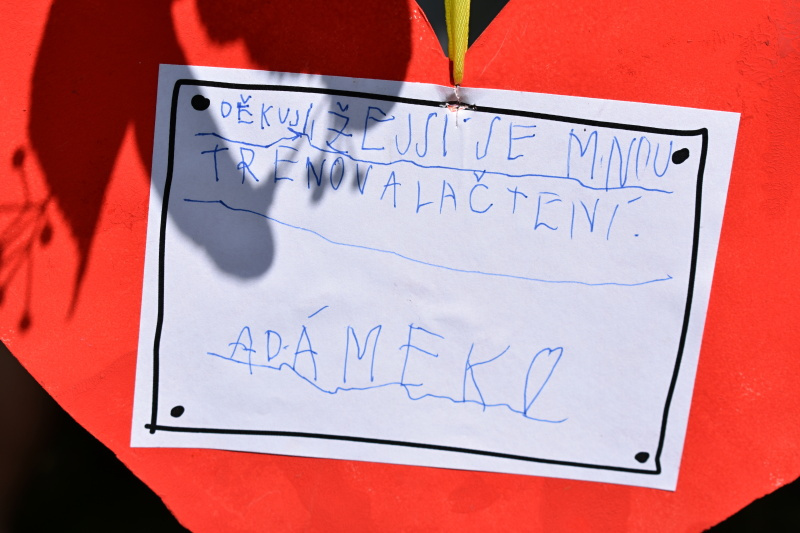 DĚKUJI ŽEJSI SE MNOU
TRÉNOVALAČTENÍ.
ADÁMEK